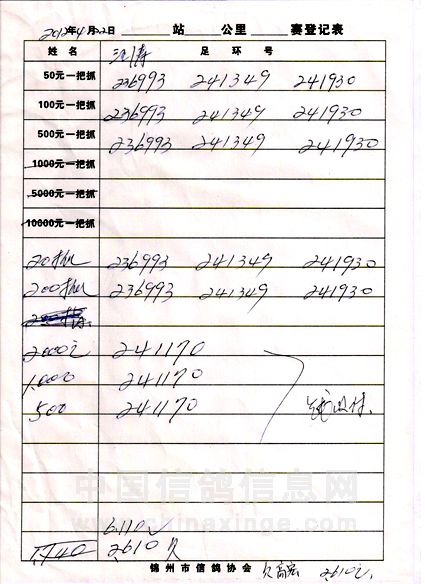 2012年4月22日 站 公里 赛登记表
姓名 足环号
50元一把抓 236993 241349 241930
100元一把抓 236993 241349 241930
500元一把抓 236993 241349 241930
1000元一把抓
5000元一把抓
10000元一把抓
20 236993 241349 241930
200 236993 241349 241930
2000元 241170
1000 241170
500 241170
中国信鸽信息网
www.chinaxinge.com
6110元
2610欠
锦州市信鸽协会 欠 2610元